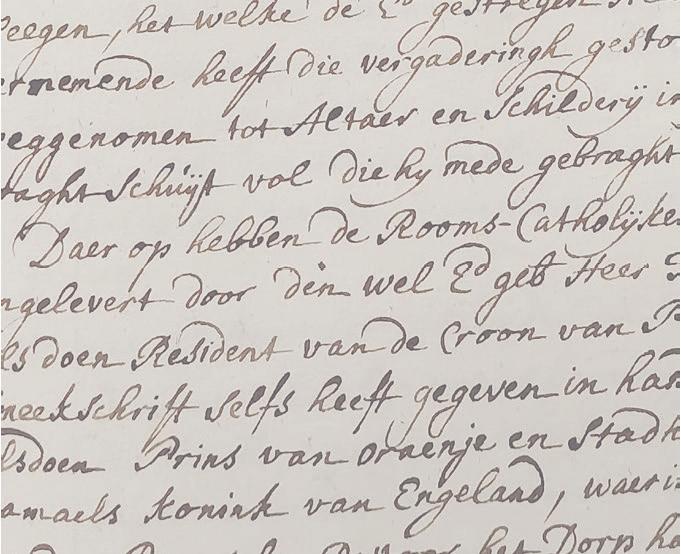 leegen, het welke de Ed gestregen
ernemende heeft die vergaderingh gesto
eggenomen tot Altaer en Schilderij in
raght Schuijt vol die hy mede gebraght
Daer op hebben de Rooms-Catholijke
ngelevert door dèn wel Ed geb Heer
ls doen Resident van de Croon van P
meekschrift selfs heeft gegeven in han
lsdoen Prins van oraenje en Stadh
amaels konink van Engeland, waeri
het Dorp ha